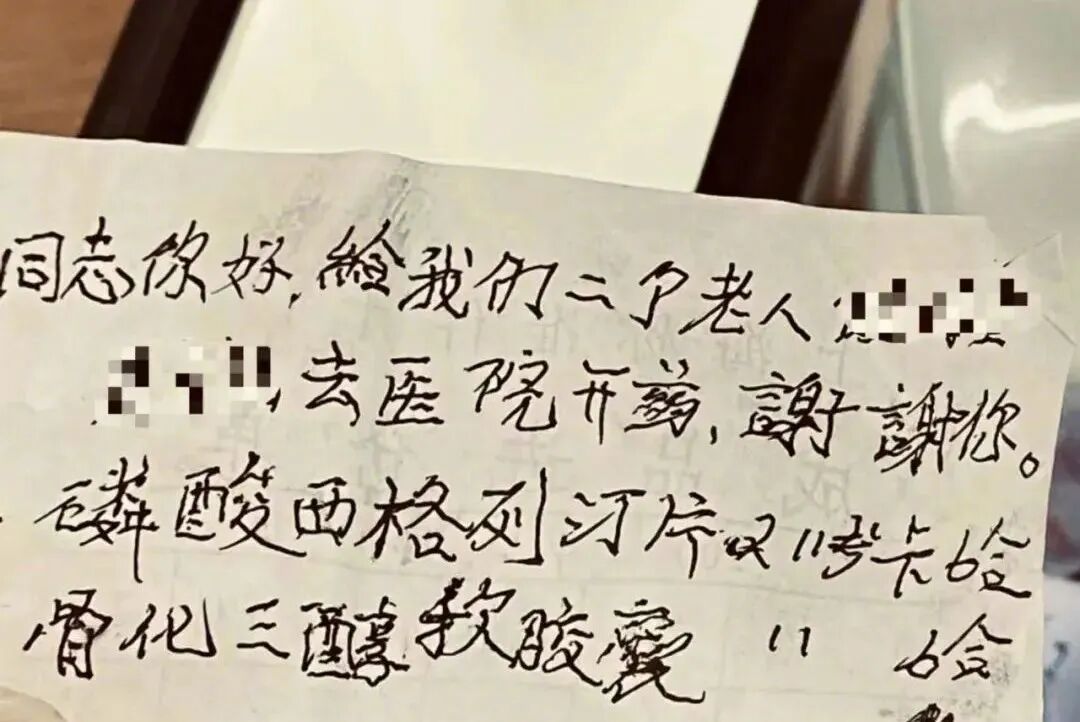 同志你好,給我们二个老人
去医院开药,謝謝你。
磷酸西格列汀片 11号卡 6合
骨化三醇软胶囊 〃 6合